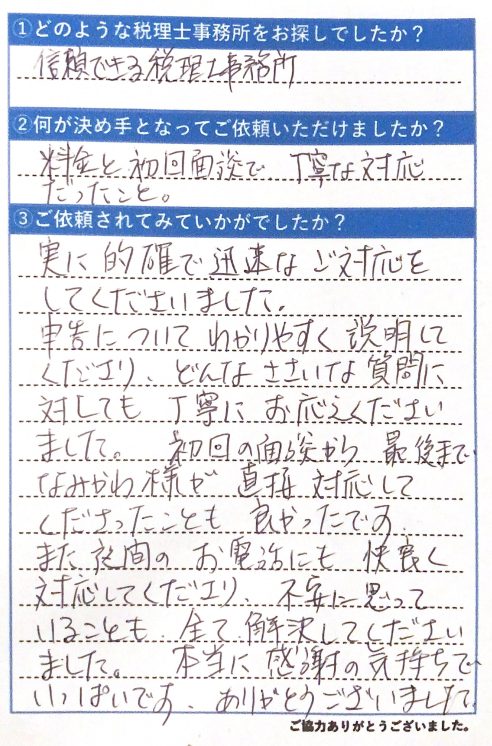 ①どのような税理士事務所をお探しでしたか？
信頼できる税理士事務所
②何が決め手となってご依頼いただけましたか？
料金と初回面談で 丁寧な対応
だったこと。
③ご依頼されてみていかがでしたか？
実に的確で迅速なご対応を
してくださいました。
申告について わかりやすく 説明して
くださり、どんなささいな質問に
対しても 丁寧に お応えください
ました。 初回の面談から 最後まで
なみかわ様が 直接 対応して
くださったことも 良かったです。
また 夜間の お電話にも 快良く
対応してくださり、不安に思って
いることも 全て 解決してください
ました。 本当に 感謝の気持ちで
いっぱいです、ありがとうございました。
ご協力ありがとうございました。